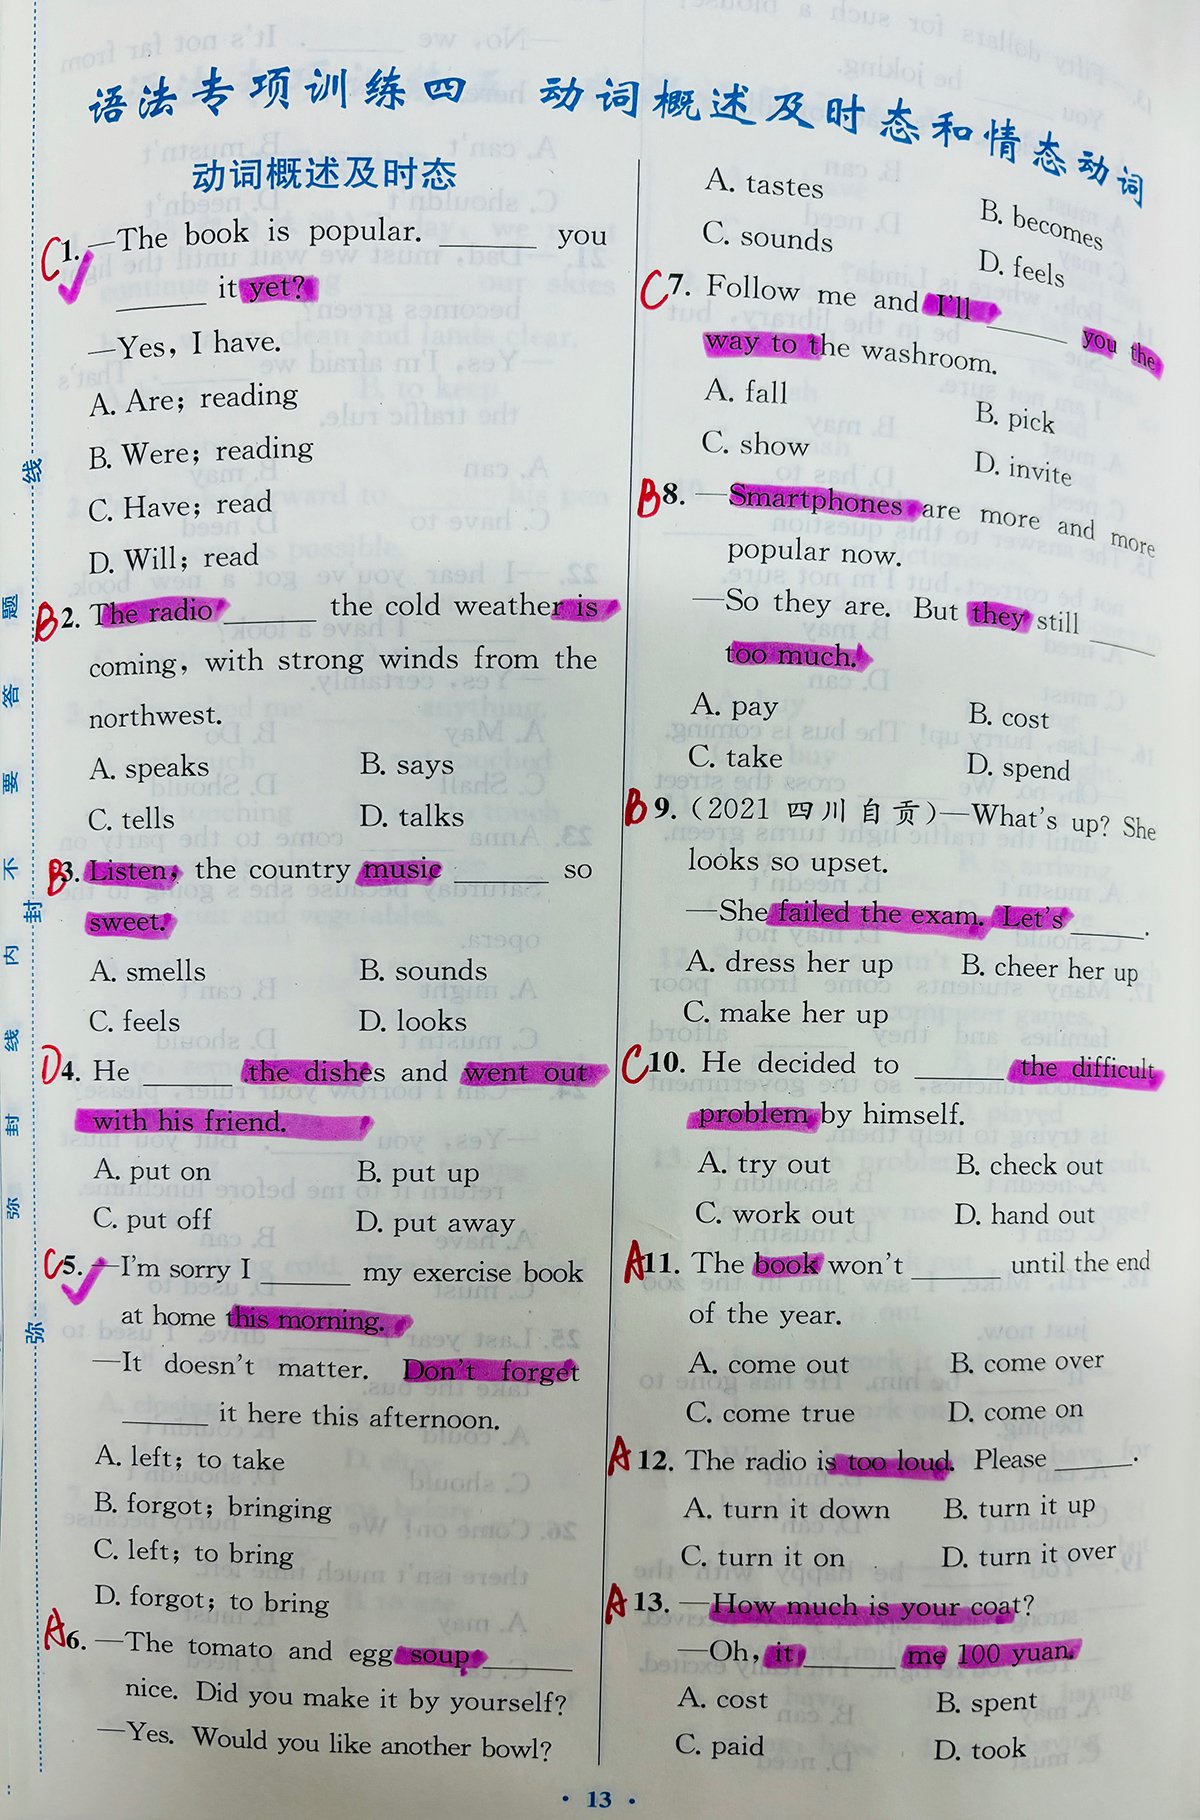 语法专项训练四 动词概述及时态和情态动词
动词概述及时态
C 1. —The book is popular. ______ you
______ it yet?
—Yes, I have.
A. Are; reading
B. Were; reading
C. Have; read
D. Will; read
B 2. The radio ______ the cold weather is
coming, with strong winds from the
northwest.
A. speaks B. says
C. tells D. talks
B 3. Listen, the country music ______ so
sweet.
A. smells B. sounds
C. feels D. looks
D 4. He ______ the dishes and went out
with his friend.
A. put on B. put up
C. put off D. put away
C 5. —I'm sorry I ______ my exercise book
at home this morning.
—It doesn't matter. Don't forget
______ it here this afternoon.
A. left; to take
B. forgot; bringing
C. left; to bring
D. forgot; to bring
A 6. —The tomato and egg soup ______
nice. Did you make it by yourself?
—Yes. Would you like another bowl?
A. tastes B. becomes
C. sounds D. feels
C 7. Follow me and I'll ______ you the
way to the washroom.
A. fall B. pick
C. show D. invite
B 8. —Smartphones are more and more
popular now.
—So they are. But they still ______
too much.
A. pay B. cost
C. take D. spend
B 9. (2021 四川自贡)—What's up? She
looks so upset.
—She failed the exam. Let's ______.
A. dress her up B. cheer her up
C. make her up
C 10. He decided to ______ the difficult
problem by himself.
A. try out B. check out
C. work out D. hand out
A 11. The book won't ______ until the end
of the year.
A. come out B. come over
C. come true D. come on
A 12. The radio is too loud. Please ______.
A. turn it down B. turn it up
C. turn it on D. turn it over
A 13. —How much is your coat?
—Oh, it ______ me 100 yuan.
A. cost B. spent
C. paid D. took
弥 封 线 内 不 要 答 题
弥 封 线
· 13 ·